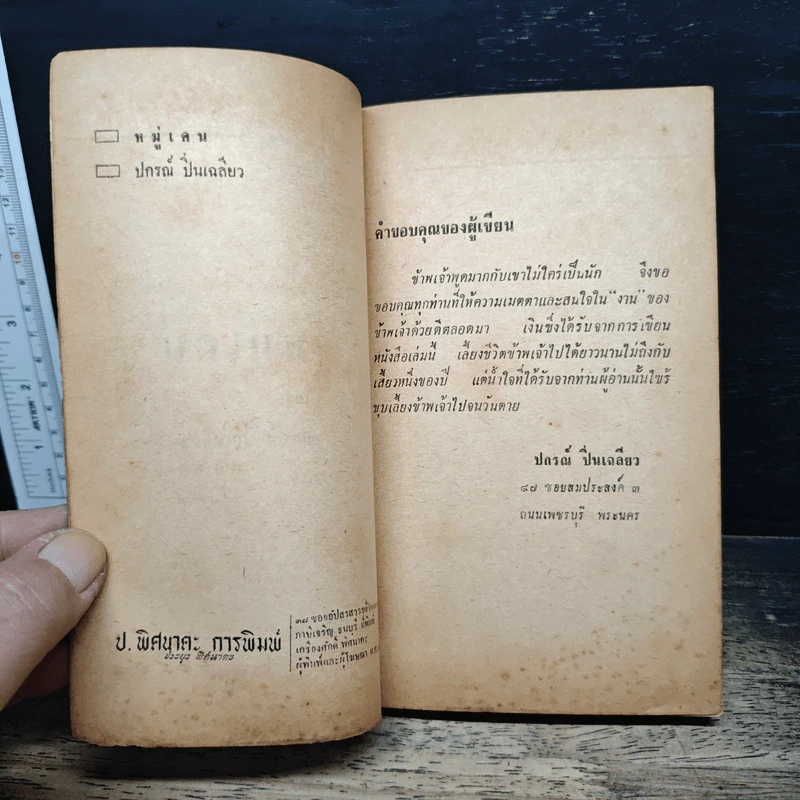 หมู่เดน
ปกรณ์ ปิ่นเฉลียว
ป. พิศนาคะ การพิมพ์
ประยูร พิศนาคะ
๓๘ ซอยอัปสรสวรรค์
ภาษีเจริญ ธนบุรี
เกรียงศักดิ์ พิศนาคะ
ผู้พิมพ์และผู้โฆษณา
คำขอบคุณของผู้เขียน
ข้าพเจ้าพูดมากกับเขาไม่ใคร่เป็นนัก จึงขอ
ขอบคุณทุกท่านที่ให้ความเมตตาและสนใจใน “งาน” ของ
ข้าพเจ้าด้วยดีตลอดมา เงินซึ่งได้รับจากการเขียน
หนังสือเล่มนี้ เลี้ยงชีวิตข้าพเจ้าไปได้ยาวนานไม่ถึงกับ
เสี้ยวหนึ่งของปี แต่น้ำใจที่ได้รับจากท่านผู้อ่านนั้นไซร้
ชุบเลี้ยงข้าพเจ้าไปจนวันตาย
ปกรณ์ ปิ่นเฉลียว
๔๗ ซอยสมประสงค์ ๓
ถนนเพชรบุรี พระนคร
3
2
1
ARTION
Inches